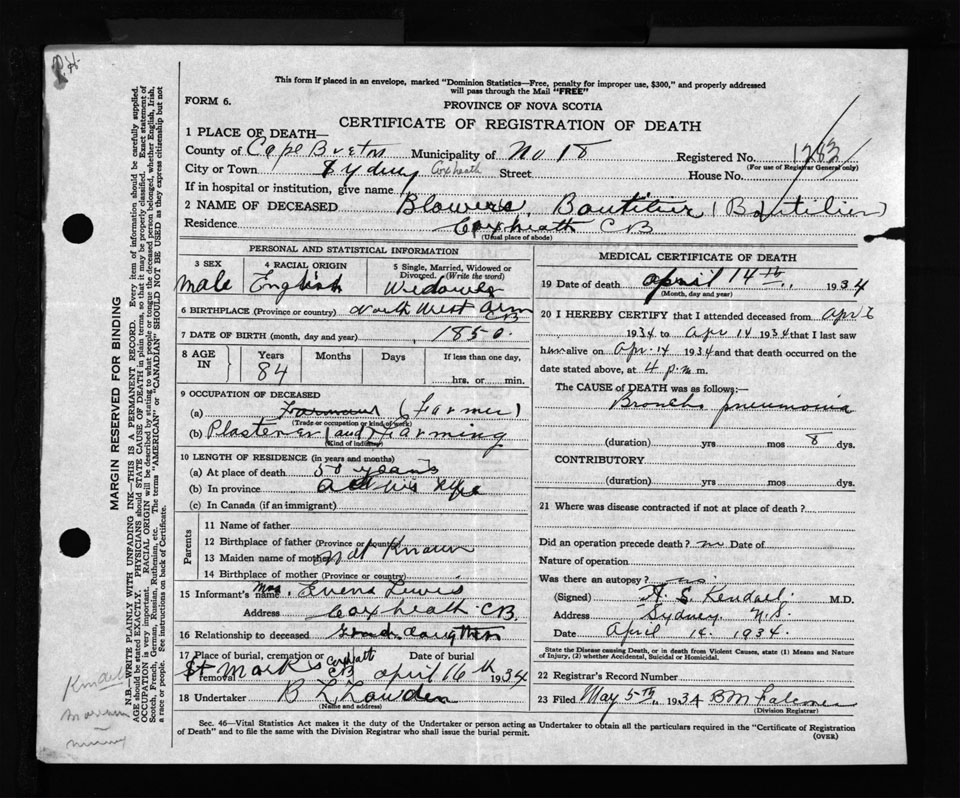 This form if placed in an envelope, marked "Dominion Statistics—Free, penalty for improper use, $300," and properly addressed
will pass through the Mail "FREE"
FORM 6.
PROVINCE OF NOVA SCOTIA
CERTIFICATE OF REGISTRATION OF DEATH
1 PLACE OF DEATH—
County of Cape Breton Municipality of No 18 Registered No. 1283
(For use of Registrar General only)
City or Town Sydney Coxheath Street House No.
If in hospital or institution, give name
2 NAME OF DECEASED Blowers, Boutilier (Boutilier)
Residence Coxheath CB
(Usual place of abode)
PERSONAL AND STATISTICAL INFORMATION
3 SEX 4 RACIAL ORIGIN 5 Single, Married, Widowed or
Divorced. (Write the word)
male English Widower
6 BIRTHPLACE (Province or country) North West Arm CB
7 DATE OF BIRTH (month, day and year) 1850.
8 AGE IN Years Months Days If less than one day,
84 hrs. or min.
9 OCCUPATION OF DECEASED
(a) (Farmer)
(Trade or occupation or kind of work)
(b) Plasterer and Farming
(Kind of industry)
10 LENGTH OF RESIDENCE (in years and months)
(a) At place of death 50 years
(b) In province all his life
(c) In Canada (if an immigrant)
Parents
11 Name of father
12 Birthplace of father (Province or country)
13 Maiden name of mother not Known
14 Birthplace of mother (Province or country)
15 Informant's name Mrs. Lewis
Address Coxheath CB
16 Relationship to deceased Grand daughter
17 Place of burial, cremation or removal Date of burial
St Marks Coxheath CB april 16th 1934
18 Undertaker B L
(Name and address)
MEDICAL CERTIFICATE OF DEATH
19 Date of death april 14th, 1934
(Month, day and year)
20 I HEREBY CERTIFY that I attended deceased from Apr 6
1934 to Apr 14 1934 that I last saw
him alive on Apr. 14 1934 and that death occurred on the
date stated above, at 4 p.m.
The CAUSE of DEATH was as follows:—
Broncho pneumonia
(duration) yrs mos 8 dys.
CONTRIBUTORY
(duration) yrs. mos. dys.
21 Where was disease contracted if not at place of death?
Did an operation precede death? no Date of
Nature of operation
Was there an autopsy? no.
(Signed) A. S. Kendall. M.D.
Address Sydney N.S.
Date April 14. 1934.
State the Disease causing Death, or in death from Violent Causes, state (1) Means and
Nature of Injury, (2) whether Accidental, Suicidal or Homicidal.
22 Registrar's Record Number
23 Filed May 5th, 1934 B M
(Division Registrar)
Sec. 46—Vital Statistics Act makes it the duty of the Undertaker or person acting as Undertaker to obtain all the particulars required in the "Certificate of Registration
of Death" and to file the same with the Division Registrar who shall issue the burial permit.
(OVER)
MARGIN RESERVED FOR BINDING
N.B.—WRITE PLAINLY WITH UNFADING INK—THIS IS A PERMANENT RECORD. Every item of information should be carefully supplied.
AGE should be stated EXACTLY. PHYSICIANS should STATE CAUSE OF DEATH in plain terms, so that it may be properly classified. Exact statement of
OCCUPATION is very important. RACIAL ORIGIN will be described by stating to what people or tongue the deceased person belonged, whether English, Irish,
Scotch, French, German, Russian, Ruthenian, etc. The terms "AMERICAN" or "CANADIAN" SHOULD NOT BE USED as they express citizenship but not
a race or people. See instructions on back of Certificate.